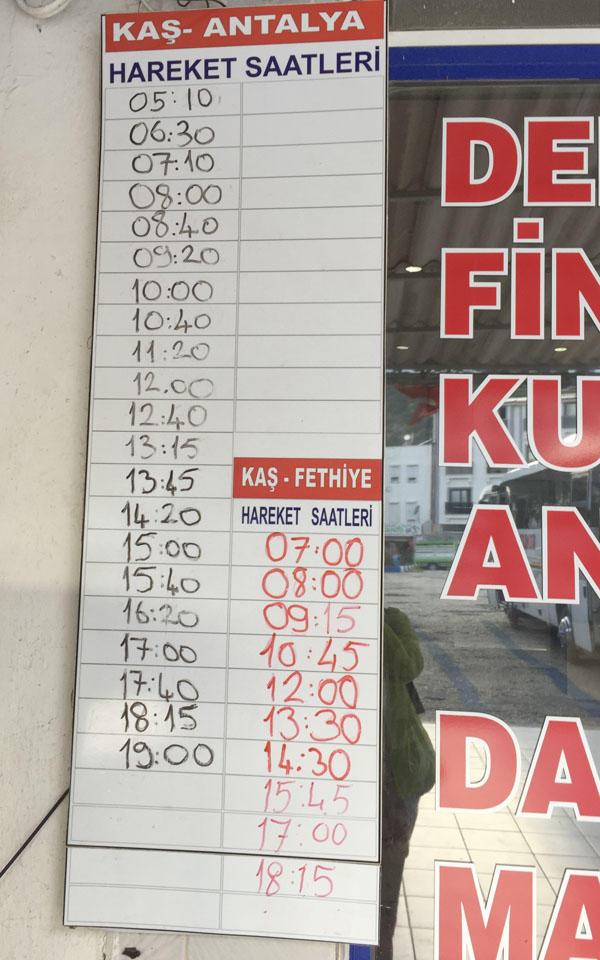 KAŞ- ANTALYA
HAREKET SAATLERİ
05:10
06:30
07:10
08:00
08:40
09:20
10:00
10:40
11:20
12.00
12:40
13:15
13:45
14:20
15:00
15:40
16:20
17:00
17:40
18:15
19:00
KAŞ - FETHİYE
HAREKET SAATLERİ
07:00
08:00
09:15
10:45
12:00
13:30
14:30
15:45
17:00
18:15
DE
FİN
KU
AN
DA
MA